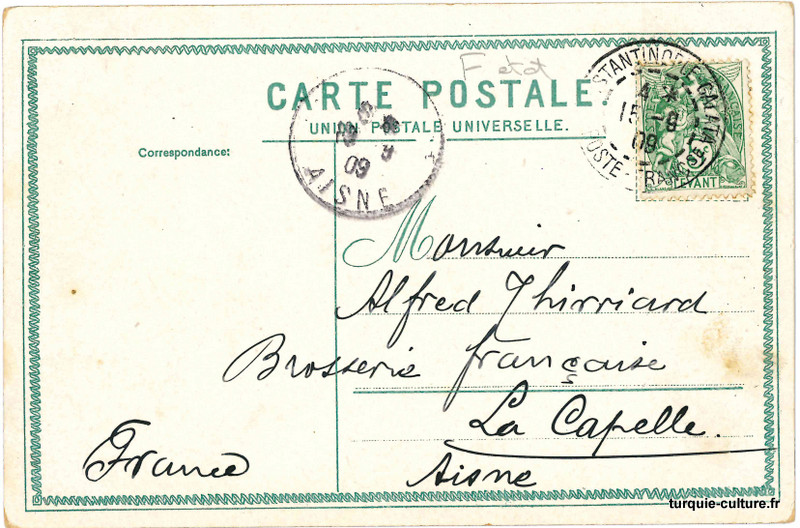 F etat
CARTE POSTALE
UNION POSTALE UNIVERSELLE.
CONSTANTINOPLE-GALATA
15 -8
09
POSTE FRANÇSE
LEVANT
09
AISNE
Correspondance:
Monsieur
Alfred Thirriard
Brosserie française
La Capelle.
Aisne
France
turquie-culture.fr